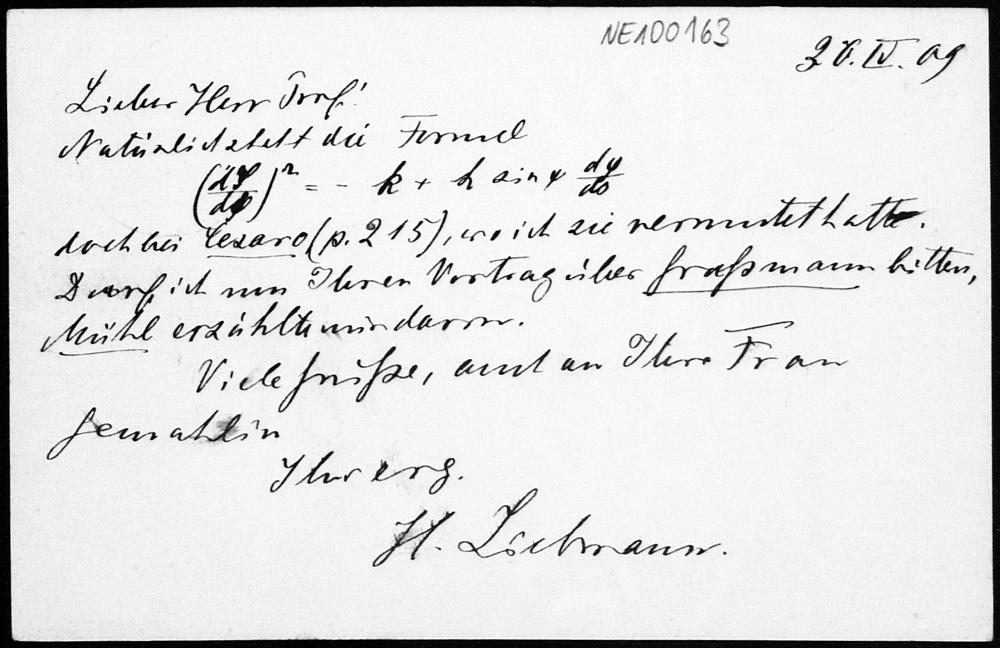 NE100163
28.IV.09
Lieber Herr Prof!
Natürlich steht die Formel
(dφ/dψ)² = - k + h sin φ dφ/ds
doch bei Cesaro (p. 215), wo ich sie vermutet hatte.
Darf ich um Ihren Vortrag über Graßmann bitten,
Mühl erzählte mir davon.
Viele Grüße, auch an Ihre Frau
Gemahlin
Ihr erg.
H. Liebmann.